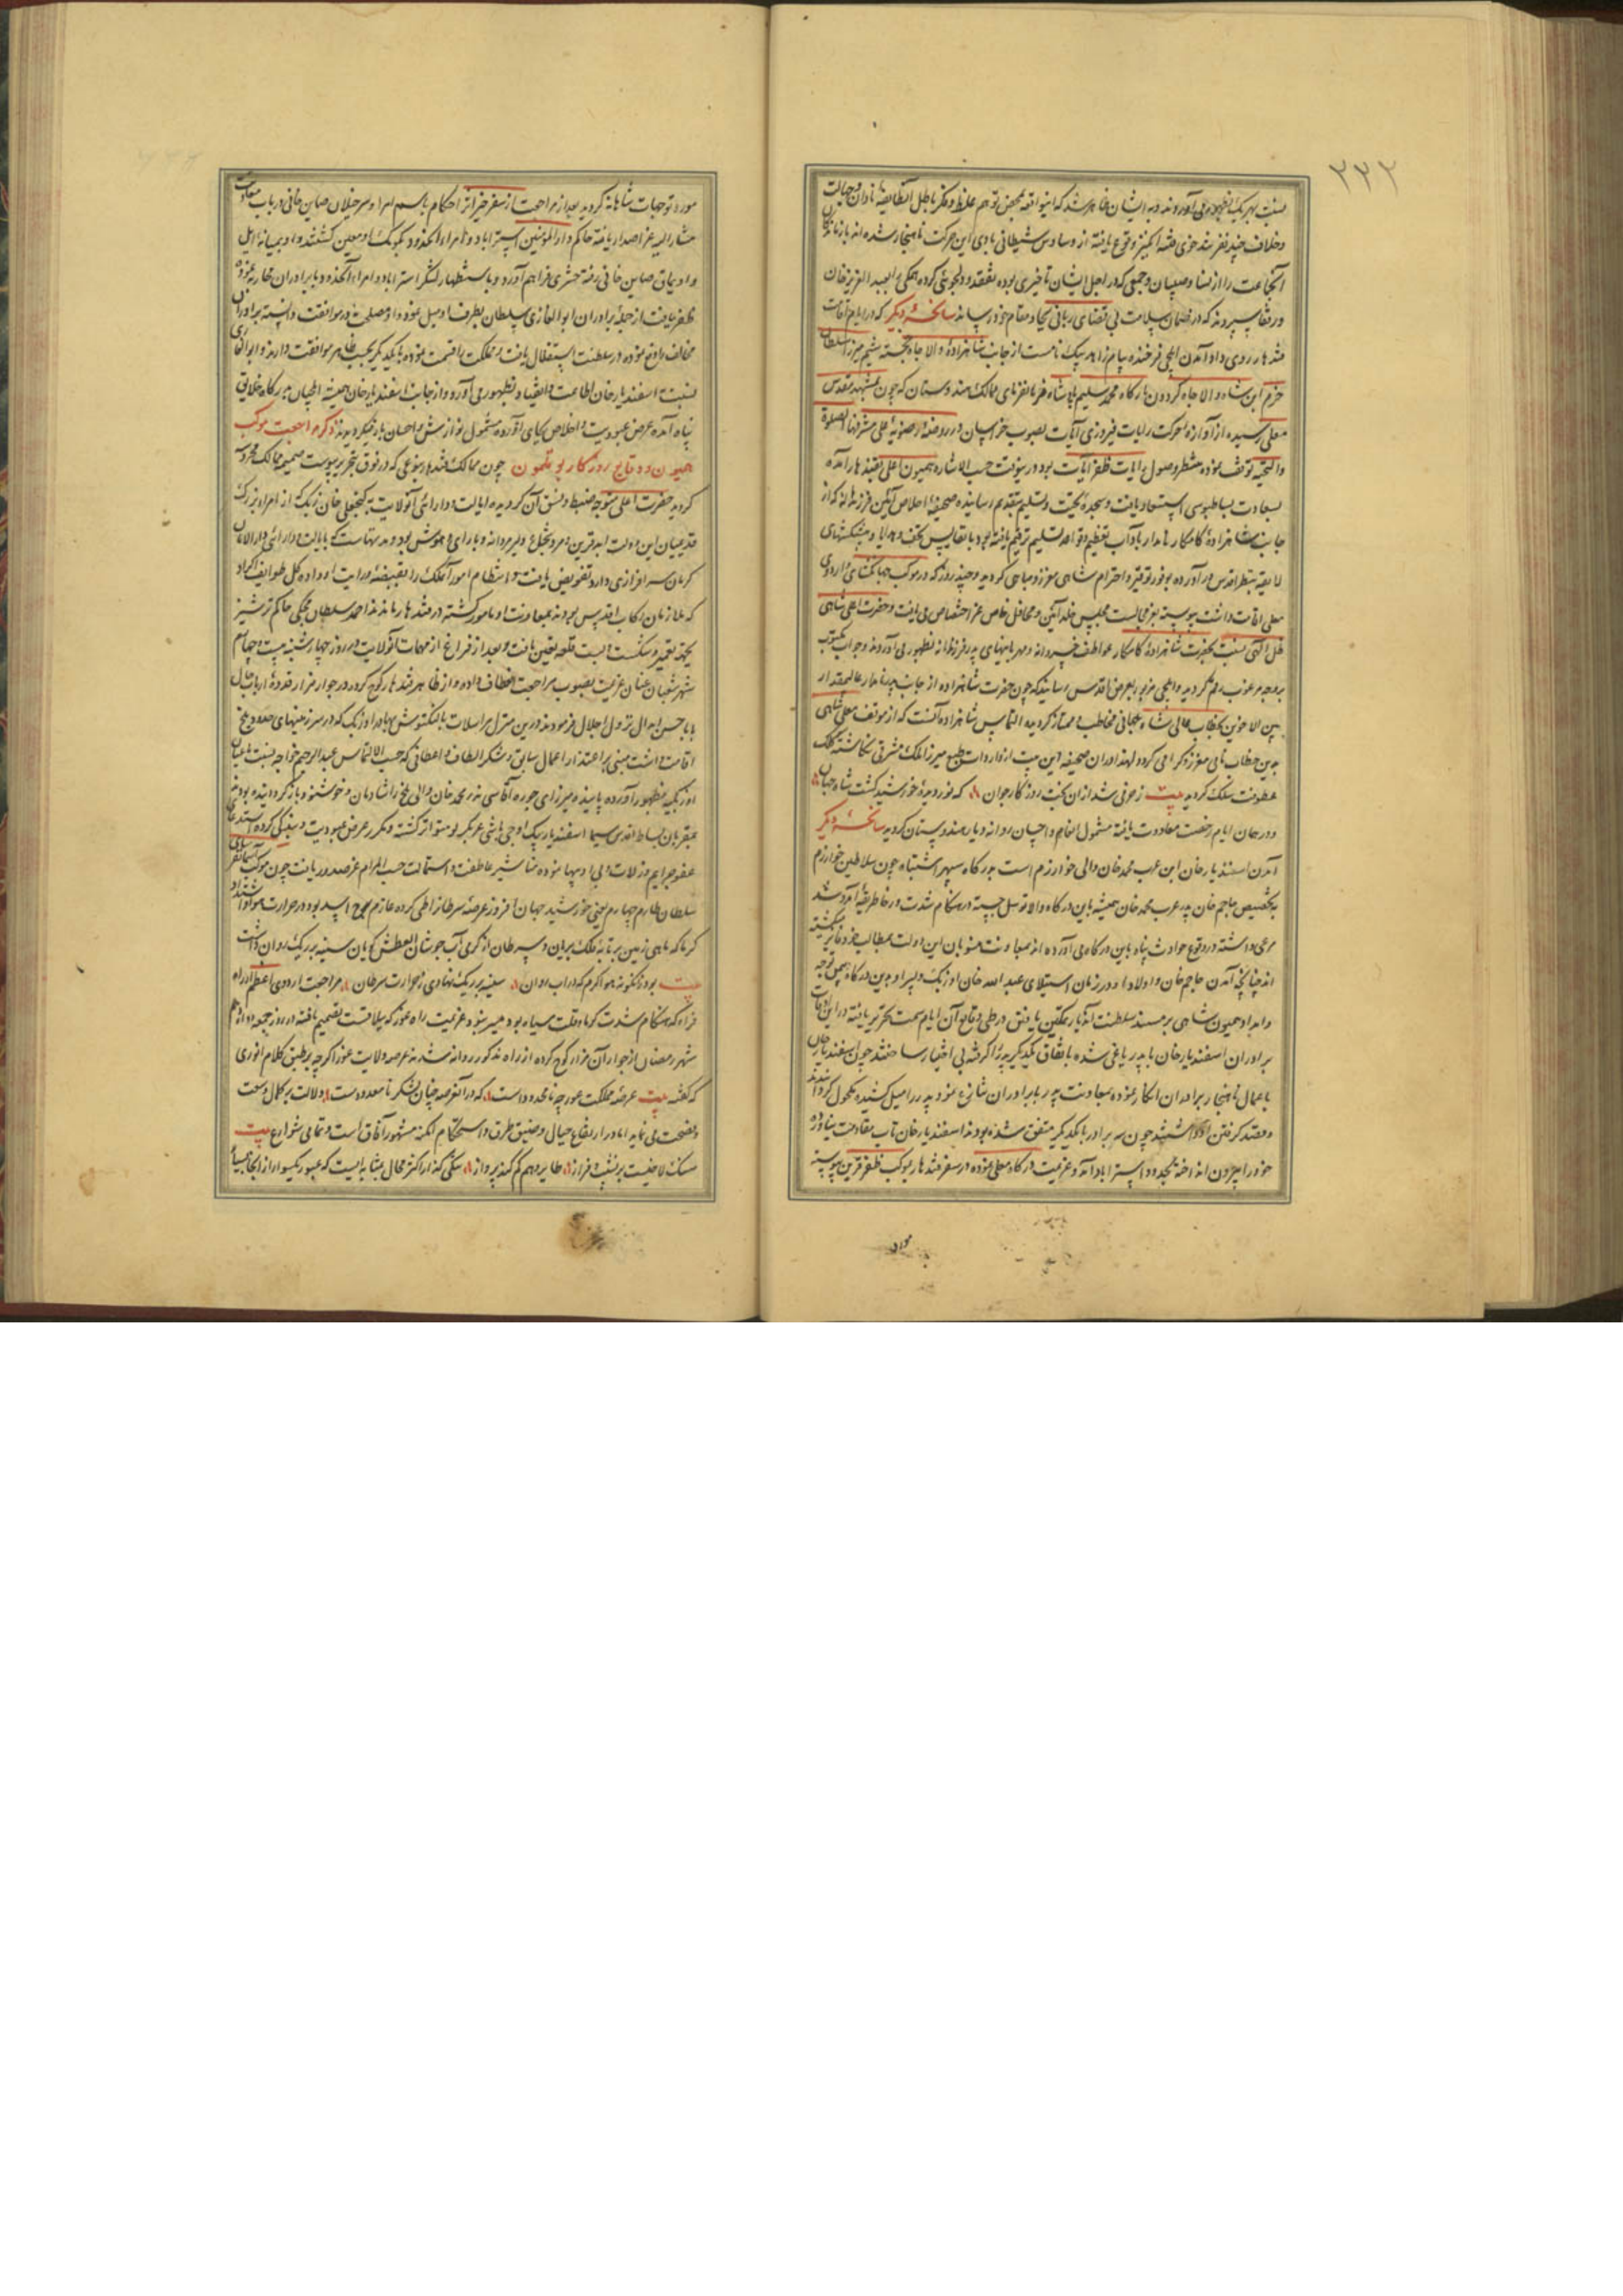 ۲۳۲
نسبت بهر یک بظهور می آوردند و بر ایشان ظاهر شد که این واقعه بمحض توهم غلط و فکر باطل آن طایفه نادان و جهالت
و خلاف چند نفر تند خوی فتنه انگیز وقوع یافته از وساوس شیطانی بادی این حرکت ناهنجار شده اند بازماندگان
آنجماعت را از نسا و صبیان و جمعی که در اجل ایشان تأخیری بوده تفقد و دلجوئی کرده همگی را بعبد العزیز خان
و رفقا سپردند که در ضمان سلامت بی قضای ربانی بجا و مقام خود رساند سانحهٔ دیگر که در ایام اقامت
قندهار روی داد آمدن ایلچی فرخنده پیام زاهد بیک نام است از جانب شاهزادهٔ والا جاه خجسته شیم میرزا سلطان
خرم ابن شاه والا جاه گردون بارگاه محمد سلیم پادشاه فرمانفرمای ممالک هندوستان که چون بمشهد مقدس
معلی رسیده از آوازهٔ حرکت رایات فیروزی آیات بصوب خراسان در روضهٔ رضویه علی مشرفها الصلوة
والتحیه توقف نموده منتظر وصول رایات ظفر آیات بود درینوقت حسب الاشاره همیون اعلی بقندهار آمده
بسعادت بساطبوسی استسعاد یافت و سجدهٔ تحیت و تسلیم بتقدیم رسانیده صحیفهٔ اخلاص آئین فرزندانه که از
جانب شاهزادهٔ کامکار نامدار بآداب تعظیم و قواعد تسلیم ترقیم یافته بود با نفایس تحف و هدایا و پیشکشهای
لایقه بنظر اقدس در آورده بوفور توقیر و احترام شاهی معزز و مباهی گردید و چند روز که در موکب جهانگشای و اردوی
معلی اقامت داشت پیوسته بعز مجالست مجلس خلد آئین و محافل خاص عز اختصاص می یافت و حضرت اعلی شاهی
ظل الهی نسبت بحضرت شاهزادهٔ کامکار عواطف خسروانه و مهربانیهای پدر فرزندانه بظهور می آوردند و جواب مکتوب
بر وجه مرغوب رقم گردید و ایلچی مزبور بعرض اقدس رسانید که چون حضرت شاهزاده از جانب پدر نامدار عالیمقدار
بین الاخوین بخطاب عالی شاه جهانی مخاطب و ممتاز گردیده التماس شاهزاده آنست که از موقف معلی شاهی
بدین خطاب نامی معزز و گرامی گردد لهذا در ان صحیفه این بیت از واردات طبع میرزا ملک مشرقی نگاشته کلک
عطوفت سلک گردید بیت زعونی شد از ان بخت روزگار جوان که نور دیدهٔ خورشید گشت شاه جهان
و در همان ایام رخصت معاودت یافته مشمول انعام و احسان روانه دیار هندوستان گردید سانحهٔ دیگر
آمدن اسفندیار خان ابن عرب محمد خان والی خوارزم است بدرگاه سپهر اشتباه چون سلاطین خوارزم
بتخصیص حاجم خان پدر عرب محمد خان همیشه باین درگاه والا توسل جسته در هنگام شدت و رخا طریقهٔ آمد و شد
مرعی داشته در وقوع حوادث پناه باین درگاه می آورده اند بمعاونت منسوبان این دولت بمطالب خود فایز میگشته
اند چنانچه آمدن حاجم خان و اولاد او در زمان استیلای عبد الله خان اوزبک و پسر او بدین درگاه و بیمن توجه
و امداد همیون شاهی بر مسند سلطنت آندیار تمکین یافتن در طی وقایع آن ایام سمت تحریر یافته در این اوقات
برادران اسفندیار خان با پدر یاغی شده باتفاق یکدیگر پدر را گرفته بی اختیار ساختند چون اسفندیار خان
باعمال ناهنجار برادران انکار نموده بمعاونت پدر با برادران منازع نموده پدر را میل کشیده مکحول گردانیدند
و قصد گرفتن او داشتند چون سه برادر با یکدیگر متفق شده بودند اسفندیار خان تاب مقاومت نیاورده
خود را بیرون انداخته بحدود استراباد آمد و عزیمت درگاه معلی نموده در سفر قندهار بموکب ظفر قرین پیوسته
مورد
مورد توجهات شاهانه گردید بعد از مراجعت از سفر خیر اثر احکام باسم امرا و سرخیلان صاین خانی در باب معاونت
مشار الیه عز اصدار یافته حاکم دار المؤمنین استراباد و امراء آنحدود بکومک او معین گشتند و او بمیانه ایل
و اویماق صاین خانی رفته حشری فراهم آورد و باستظهار لشکر استراباد و امراء آنحدود با برادران محاربه نموده
ظفر یافت از جمله برادران ابو الغازی سلطان بطرف او میل نمود و او مصلحت در موافقت دانسته برادران
مخالف را دفع نموده در سلطنت استقلال یافت و مملکت را قسمت نموده با یکدیگر بحسب ظاهر موافقت دارند و ابو الغازی
نسبت اسفندیار خان اطاعت و انقیاد بظهور می آورد و از جانب اسفندیار خان همیشه ایلچیان بدرگاه خلایق
پناه آمده عرض عبودیت و اخلاص بجای آورده مشمول نوازش و احسان باز میگردیدند ذکر مراجعت موکب
همیون و وقایع روزگار بوقلمون چون ممالک قندهار بنوعی که در فوق بتحریر پیوست ضمیمه ممالک محروسه
گردید حضرت اعلی متوجه ضبط و نسق آن گردیده ایالت و دارائی آنولایت به گنجعلی خان زیک که از امراء بزرگ
قدیمیان این دولت ابد قرین و مرد شجاع دلیر مردانه و با رای و هوش بود و مدتهاست که بایالت و دارائی دار الامان
کرمان سرافرازی دارد تفویض یافت و انتظام امور آنملک را بقبضهٔ درایت او داده کل طوایف اکراد
که ملازمان رکاب اقدس بودند بمعاونت او مأمور گشته در قندهار ماندند احمد سلطان حاکم ترشیز
بجهت تعمیر و شکست و بست قلعه تعیین یافت و بعد از فراغ از مهمات آنولایت در روز چهارشنبه بیست و چهارم
شهر شعبان عنان عزیمت بصوب مراجعت انعطاف داده و از ظاهر قندهار کوچ کرده در جوار مزار قدوهٔ ارباب حال
بابا حسن ابدال نزول اجلال فرمودند و درین منزل مراسلات یالنکتوش بهادر اوزبک که در سرزمینهای حدود بلخ
اقامت داشت مبنی بر اعتذار اعمال سابق و شکر الطاف و اعطافی که حسب الالتماس عبد الرحیم خواجه نسبت باعیان
اوزبکیه بظهور آورده پاینده میرزای جوره آقاسی نذر محمد خان والی بلخ را شادمان و خوشنود باز گردانیده بودند
بمقربان بساط اقدس سیما اسفندیار بیک اوجی باشی عربگیرلو متواتر گشته و مکرر عرض عبودیت و بندگی کرده استدعای
عفو جرایم و زلات و بی ادبیها نموده مناشیر عاطفت و استمالت حسب المرام عز صدور یافت چون موکب آسمان
سلطان طارم چهارم یعنی خورشید جهان افروز عرصهٔ سرطان را طی کرده عازم برج اسد بود در حرارت هوا و اشتداد
گرما که ماهی زمین بر تابهٔ فلک بریان و سرطان از گرمی آب جوشان العطش گویان سینه بر ریگ روان داشت
بیت بود آنگونه هوا گرم که در آب روان سینه بر ریگ نهادی ز حرارت سرطان مراجعت اردوی اعظم از راه
فراه که هنگام شدت گرما و قلت سیاه بود میسر نبود عزیمت راه غور که ییلاقست تصمیم یافته در روز جمعه دوازدهم
شهر رمضان از جوار آن مزار کوچ کرده از راه مذکور روانه شدند عرصه ولایت غور اگر چه بر طبق کلام انوری
که گفته بیت عرصهٔ مملکت غور چه نامحدود است که در آن عرصه چنان لشکر نامعدود است دلالت بر کمال وسعت
و فسحت می نماید اما در ارتفاع جبال و ضیق طرق و استحکام امکنه مشهور آفاق است و تمامی شوارع بیت
سنگلاخیست بر نشیب و فراز طایر وهم کم کند پرواز سنگی گذار اکثر محال بمثابه ایست که عبور یکسوار از آنجا بصعوبت